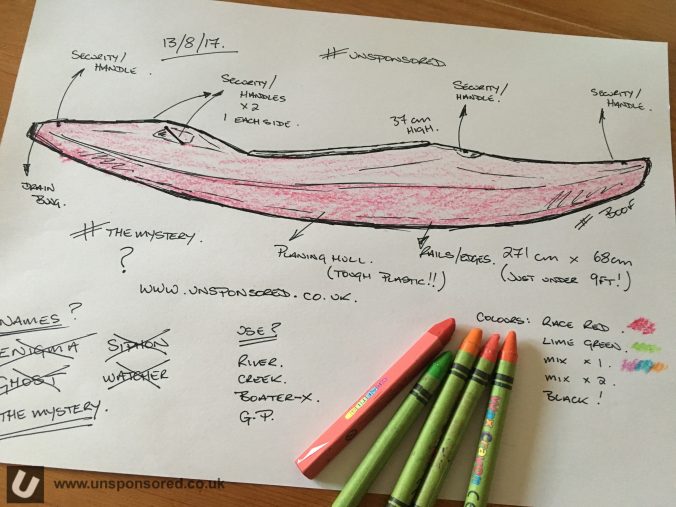 13/8/17.
#UNSPONSORED
SECURITY/
HANDLE.
SECURITY/
HANDLES
x 2
1 EACH SIDE.
37cm
HIGH.
SECURITY/
HANDLE.
SECURITY/
HANDLE.
DRAIN
BUNG.
# BOOF
# THE MYSTERY.
?
PLANING HULL.
(TOUGH PLASTIC!!)
RAILS/EDGES.
271cm x 68cm
(JUST UNDER 9FT!)
WWW.UNSPONSORED.CO.UK.
NAMES?
ENIGMA
SIPHON
GHOST
WATCHER
THE MYSTERY.
USE?
RIVER.
CREEK.
BOATER-X.
G.P.
COLOURS: RACE RED.
LIME GREEN.
MIX x 1.
MIX x 2.
BLACK!
Wax Crayon
www.unsponsored.co.uk